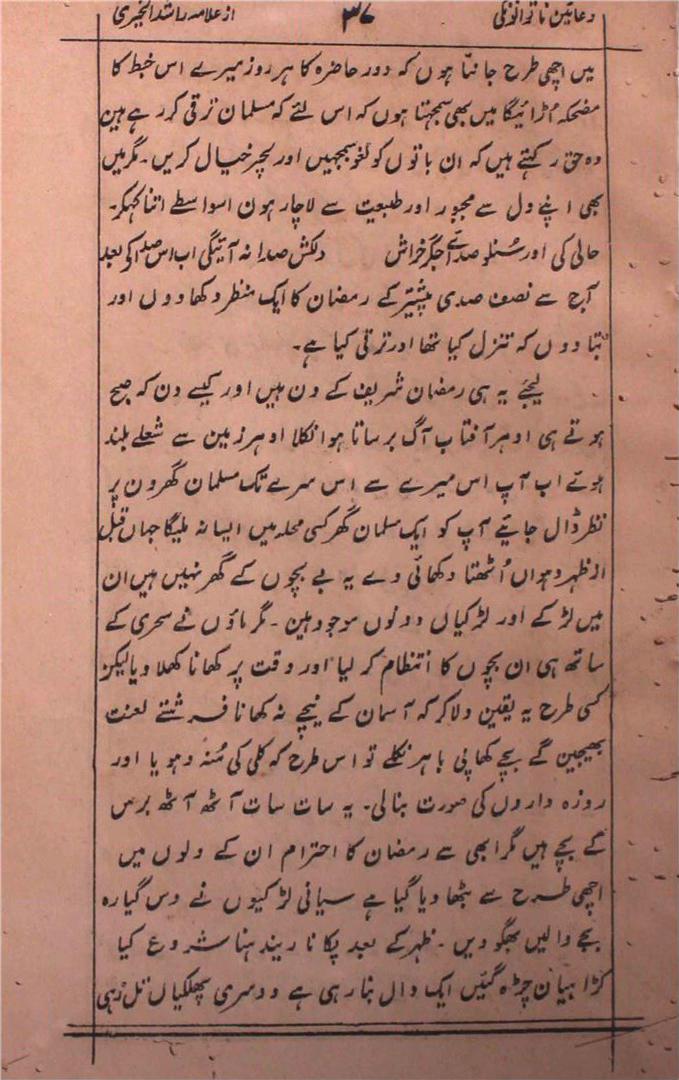 دعائیں ناتوانونکی ۳۷ از علامہ راشد الخیری
میں اچھی طرح جانتا ہوں کہ دور حاضرہ کا ہر روز میرے اس خبط کا
مضحکہ اُڑائیگا میں بھی سمجہتا ہوں کہ اس لئے کہ مسلمان ترقی کر رہے ہین
وہ حق رکہتے ہیں کہ ان باتوں کو لغو سمجہیں اور لچر خیال کریں۔ مگر میں
بھی اپنے دل سے مجبور اور طبیعت سے لاچار ہون اسواسطے اتنا کہکر۔
حالی کی اور سُنلو صدائے جگر خراش دلکش صدا نہ آئیگی اب اس صدا کی بعد
آج سے نصف صدی پیشتر کے رمضان کا ایک منظر دکھا دوں اور
بتا دوں کہ تنزل کیا تھا اور ترقی کیا ہے۔
لیجئے یہ ہی رمضان شریف کے دن ہیں اور کیسے دن کہ صبح
ہوتے ہی ادہر آفتاب آگ برساتا ہوا نکلا ادہر زمین سے شعلے بلند
ہوئے اب آپ اس سرے سے اس سرے تک مسلمان گھرون پر
نظر ڈال جائیے آپ کو ایک مسلمان گھر کسی محلہ میں ایسا نہ ملیگا جہاں قبل
از ظہر دہواں اُٹھتا دکھائی دے یہ بے بچوں کے گھر نہیں ہیں ان
میں لڑکے اور لڑکیاں دونوں موجود ہین۔ مگر ماؤں نے سحری کے
ساتھ ہی ان بچوں کا انتظام کر لیا اور وقت پر کھانا کھلا دیا لیکن
کسی طرح یہ یقین دلا کر کہ آسمان کے نیچے نہ کھانا فرشتے لعنت
بھیجین گے بچے کھا پی باہر نکلے تو اس طرح کہ کلی کی مُنہ دہویا اور
روزہ داروں کی صورت بنا لی۔ یہ سات سات آٹھ آٹھ برس
کے بچے ہیں مگر ابھی سے رمضان کا احترام ان کے دلوں میں
اچھی طرح سے بٹھا دیا گیا ہے سیانی لڑکیوں نے دس گیارہ
بجے دالیں بھگو دیں۔ ظہر کے بعد پکانا ریندہنا شروع کیا
کڑاہیان چڑہ گئیں ایک دال بنا رہی ہے دوسری پھلکیاں تل رہی